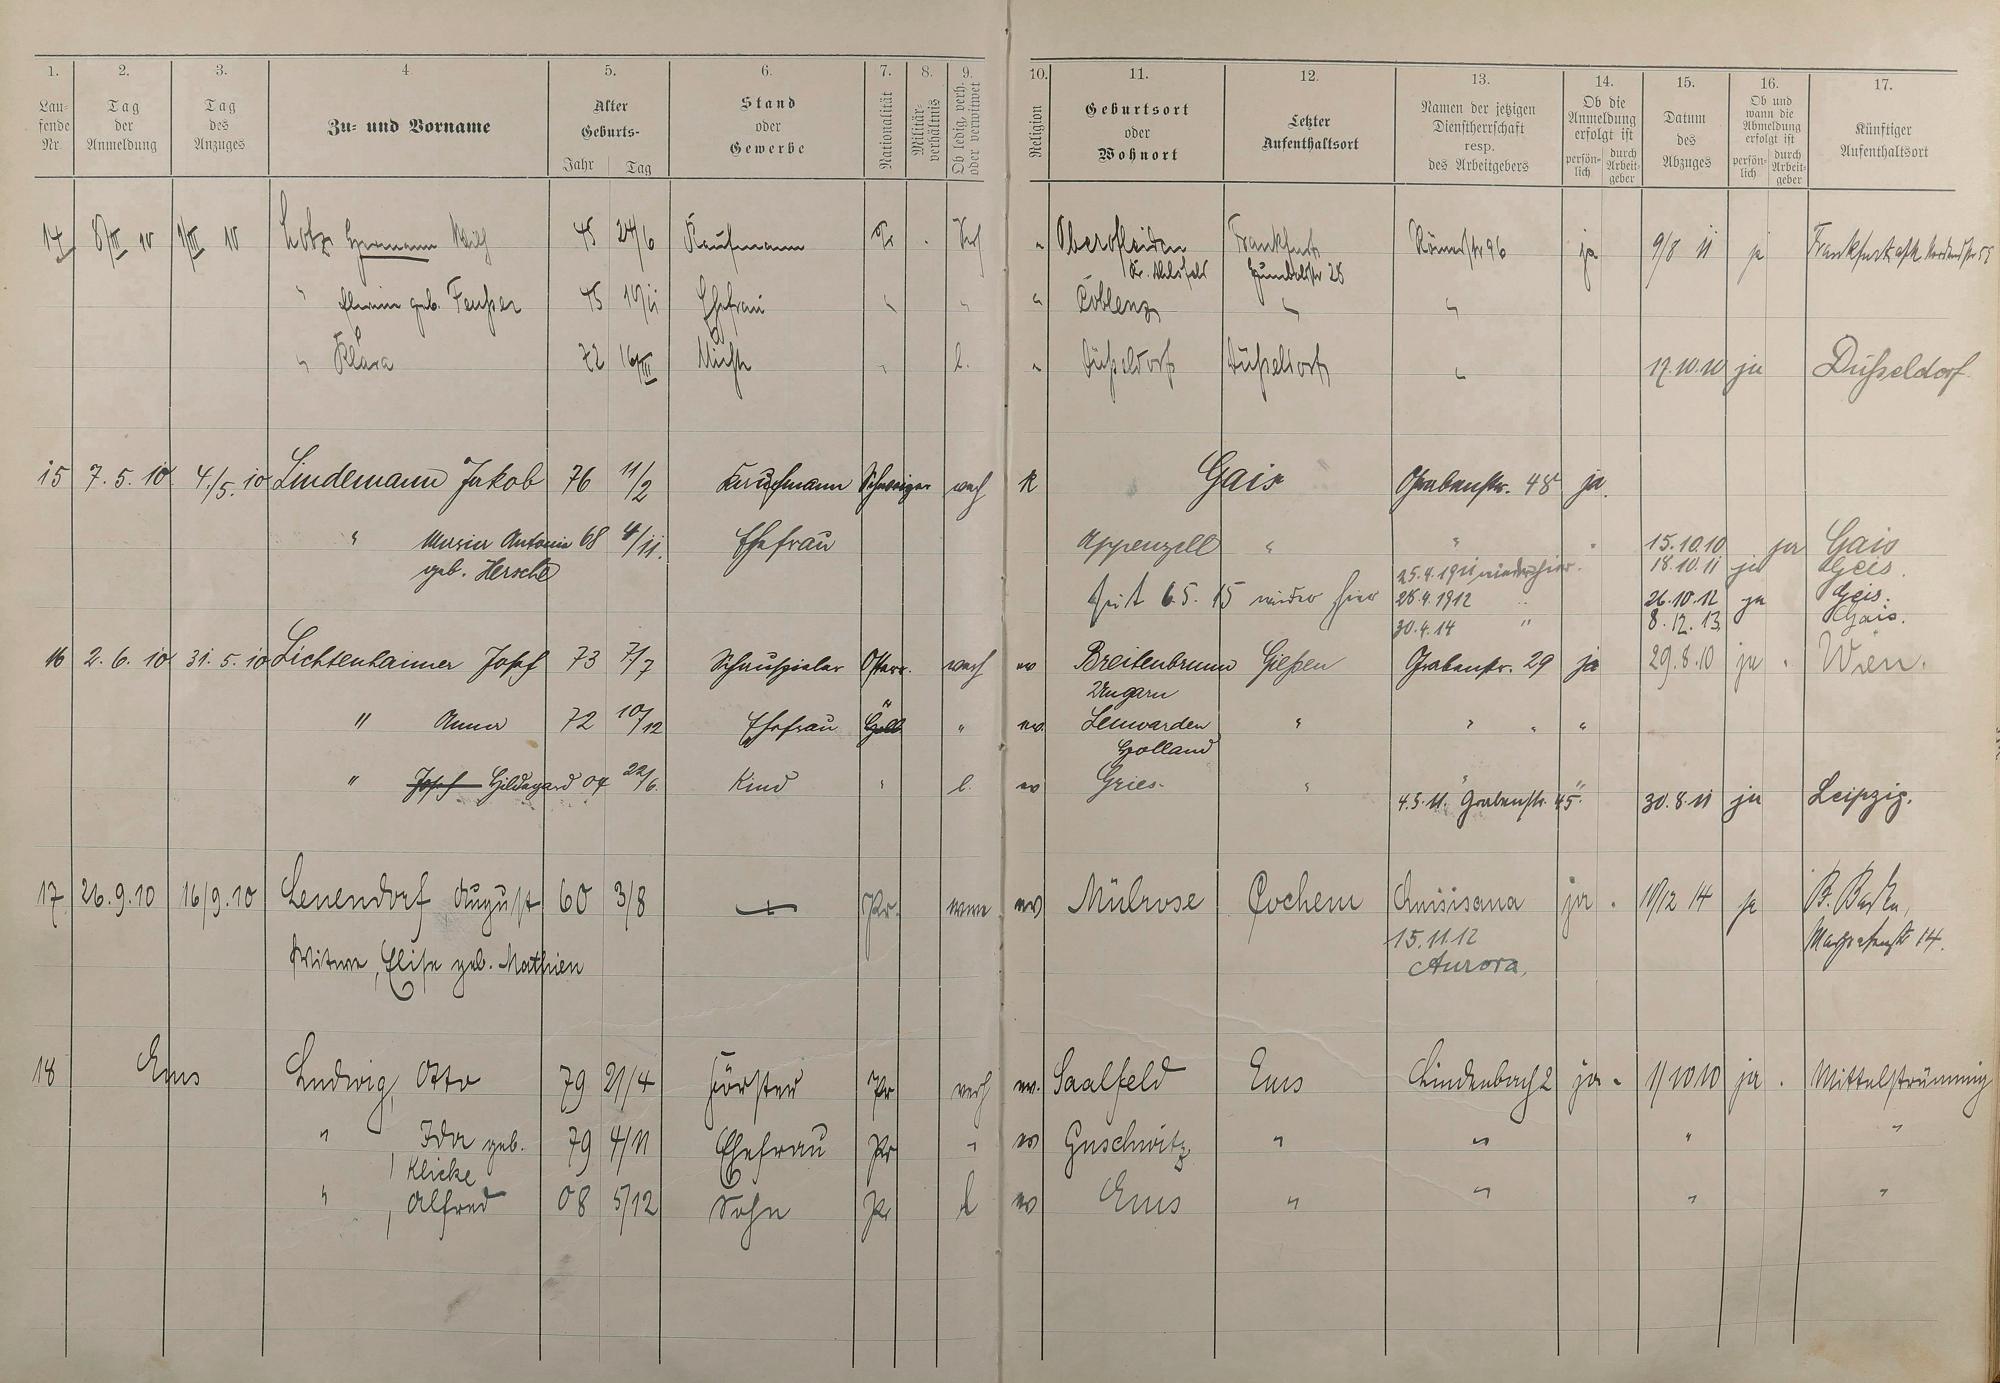 1. 2. 3. 4. 5. 6. 7. 8. 9. 10. 11. 12. 13. 14. 15. 16. 17.
Lau-
fende
Nr.
Tag
der
Anmeldung
Tag
des
Anzuges
Zu- und Vorname
Alter
Geburts-
Jahr Tag
Stand
oder
Gewerbe
Nationalität
Militär-
verhältnis
Ob ledig, verh.
oder verwitwet
Religion
Geburtsort
oder
Wohnort
Letzter
Aufenthaltsort
Namen der jetzigen
Dienstherrschaft
resp.
des Arbeitgebers
Ob die
Anmeldung
erfolgt ist
persön-
lich
durch
Arbeit-
geber
Datum
des
Abzuges
Ob und
wann die
Abmeldung
erfolgt ist
persön-
lich
durch
Arbeit-
geber
Künftiger
Aufenthaltsort
14 8/III 10 1/III 10 Lotz Hermann 45 24/6 Kaufmann Pr. " Oberofleiden Frankfurt Römerstr 96 ja 9/8 11 ja Frankfurt
" geb. Feußer 45 Ehefrau " " " Coblenz " "
" Klara 72 16/III " l. " Düßeldorf Düßeldorf " 17.10.10 ja Düßeldorf
15 7.5.10 4./5.10 Lindemann Jakob 76 11/2 Kaufmann Schweizer verh K Gais Grabenstr. 48 ja.
" Maria Antonia 68 4/11. Ehefrau Appenzell " " " 15.10.10 ja Gais
geb. Hersche 25.4.1911 wieder hier. 18.10.11 ja Geis.
seit 6.5.15 wieder hier 28.4.1912 " 26.10.12 ja Geis.
30.4.14 " 8.12.13 Gais.
16 2.6.10 31.5.10 Lichtenhaimer Josef 73 7/7 Schauspieler Österr. verh ev Breitenbrunn Gießen Grabenstr. 29 ja 29.8.10 ja " Wien.
Ungarn
" Anna 72 10/12 Ehefrau " " ev. Leuwarden " " " "
Holland
" Josef Hildegard 04 22/6. Kind " l. ev Gries. " "
4.5.11. Grabenstr. 45 30.8.11 ja Leipzig.
17 26.9.10 16/9.10 Leuendorf August 60 3/8 Pr. ev Mülrose Cochem ja. 10/12 14 ja
15.11.12 14.
Witwe, Elise geb. Mathien Aurora,
18 Ems Ludwig, Otto 79 21/4 Förster Pr verh ev. Saalfeld Ems Lindenbach 2 ja. 1/10 10 ja. Mittelstrimmig
" Ida geb. 79 4/11 Ehefrau Pr " ev Guschwitz " " " "
Klicke
" Alfred 08 5/12 Sohn Pr l ev Ems " " " "